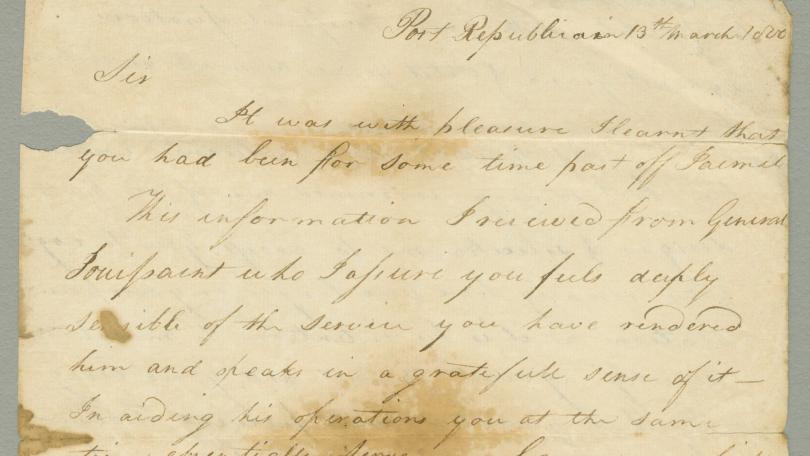 Port Republicain 13th March 1800
Sir
It was with pleasure I learnt that
you had been for some time past off Jacmel
This information I recieved from General
Touissaint who I assure you feels deeply
sensible of the service you have rendered
him and speaks in a gratefull sense of it —
In aiding his operations you at the same
essentially serve